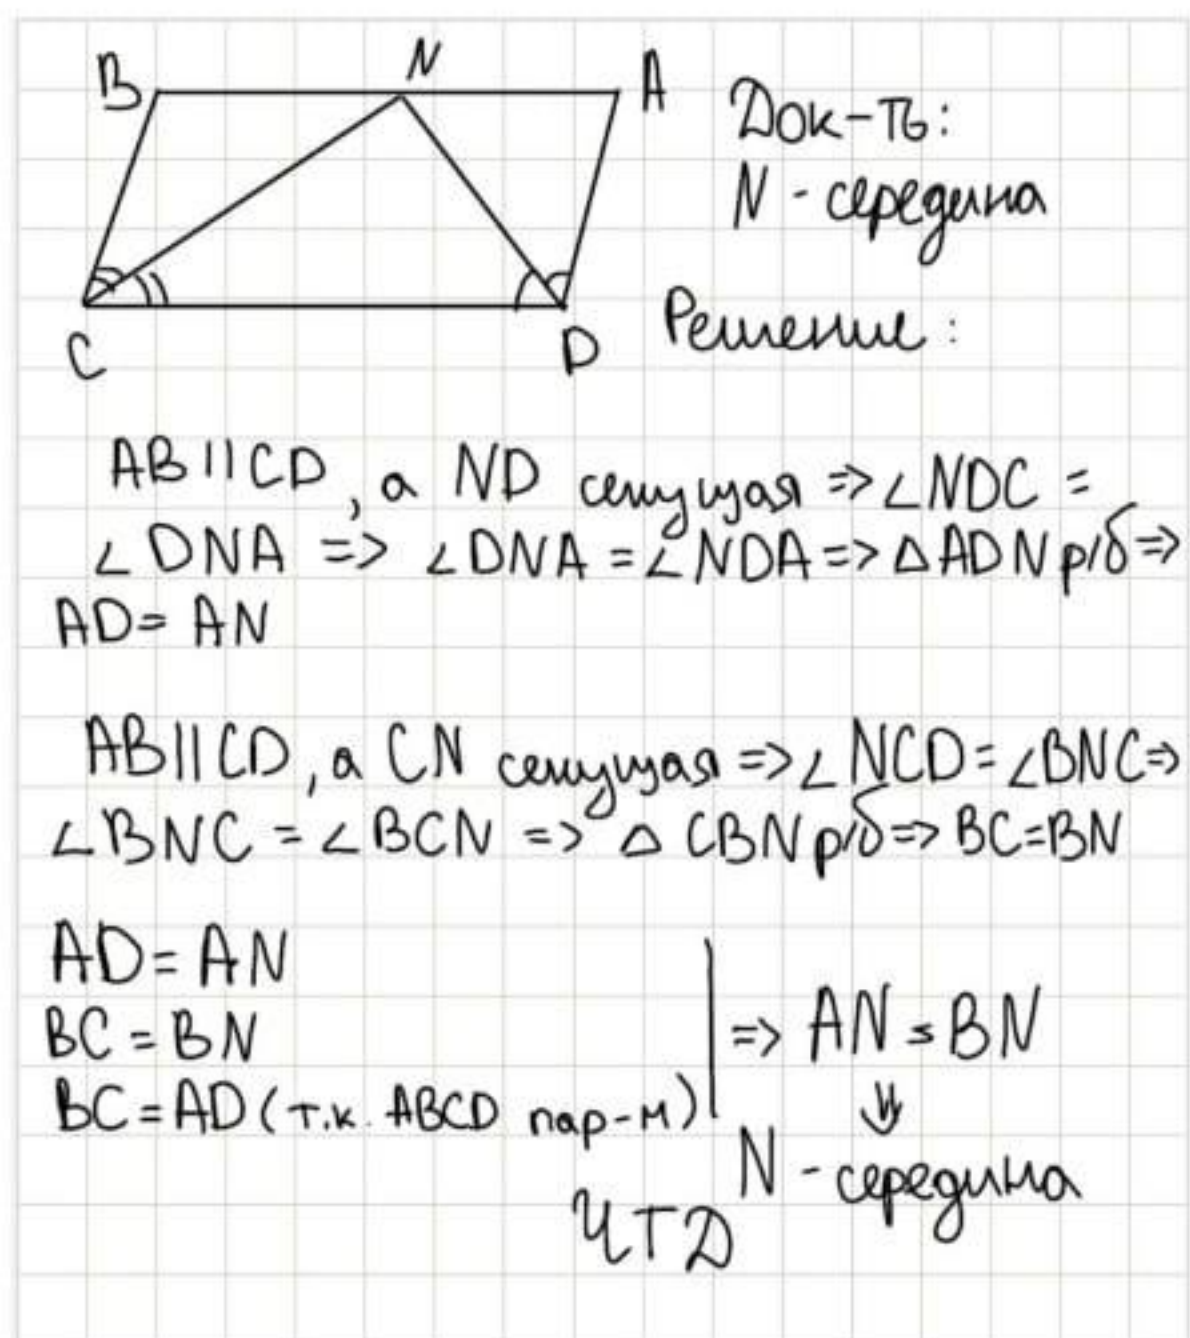 B N A
C D
Док-ть:
N - середина
Решение:
AB || CD, а ND секущая => ∠NDC =
∠DNA => ∠DNA = ∠NDA => △ADN р/б =>
AD = AN
AB || CD, а CN секущая => ∠NCD = ∠BNC =>
∠BNC = ∠BCN => △ CBN р/б => BC = BN
AD = AN
BC = BN
BC = AD (т.к. ABCD пар-м)
=> AN = BN
⇓
N - середина
ЧТД